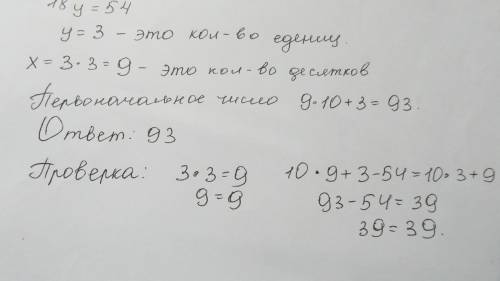 18y = 54
y = 3 - это кол-во едениц.
x = 3 · 3 = 9 - это кол-во десятков
Первоначальное число 9·10+3 = 93.
Ответ: 93
Проверка: 3 · 3 = 9 10 · 9 + 3 - 54 = 10 · 3 + 9
9 = 9 93 - 54 = 39
39 = 39.